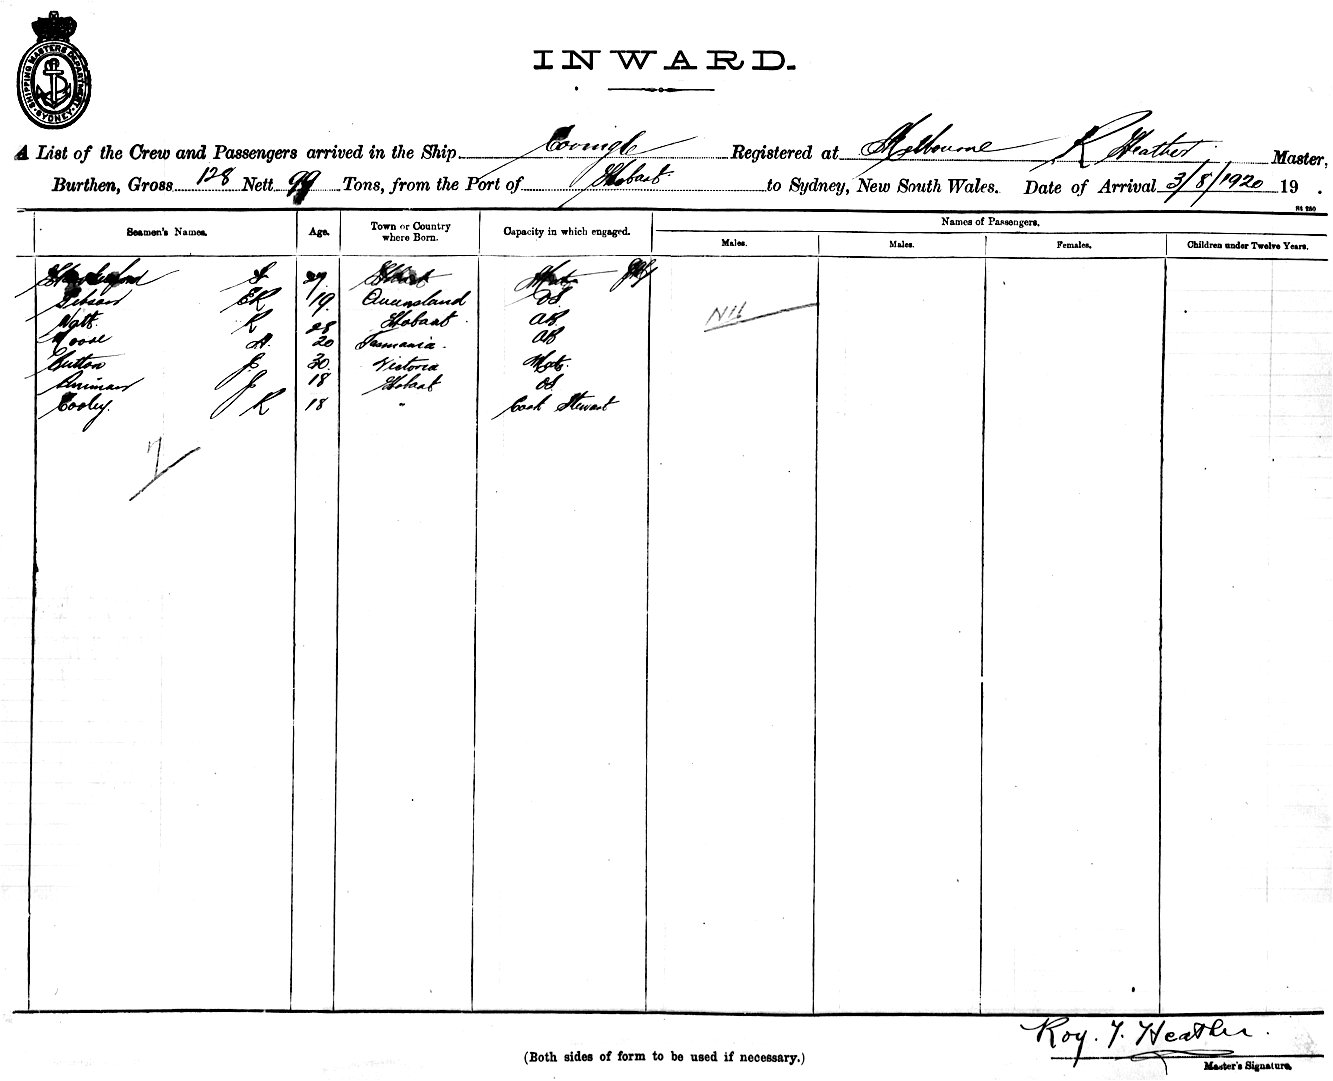 SHIPPING MASTERS DEPARTMENT SYDNEY
INWARD.
A List of the Crew and Passengers arrived in the Ship Registered at Melbourne R Heather Master,
Burthen, Gross 128 Nett 99 Tons, from the Port of Hobart to Sydney, New South Wales. Date of Arrival 3/8/1920 19 .
Names of Passengers.
Seamen's Names. Age. Town or Country where Born. Capacity in which engaged. Males. Males. Females. Children under Twelve Years.
27 Hobart Mate
Gibson ER 19 Queensland OS
Watt R 28 Hobart AB
Moore A. 20 Tasmania. AB
Nil
Button J 30 Victoria Mate
J 18 Hobart OS
Cooley. K 18 " Cook Steward
7
Roy. T. Heather.
Master's Signature.
(Both sides of form to be used if necessary.)